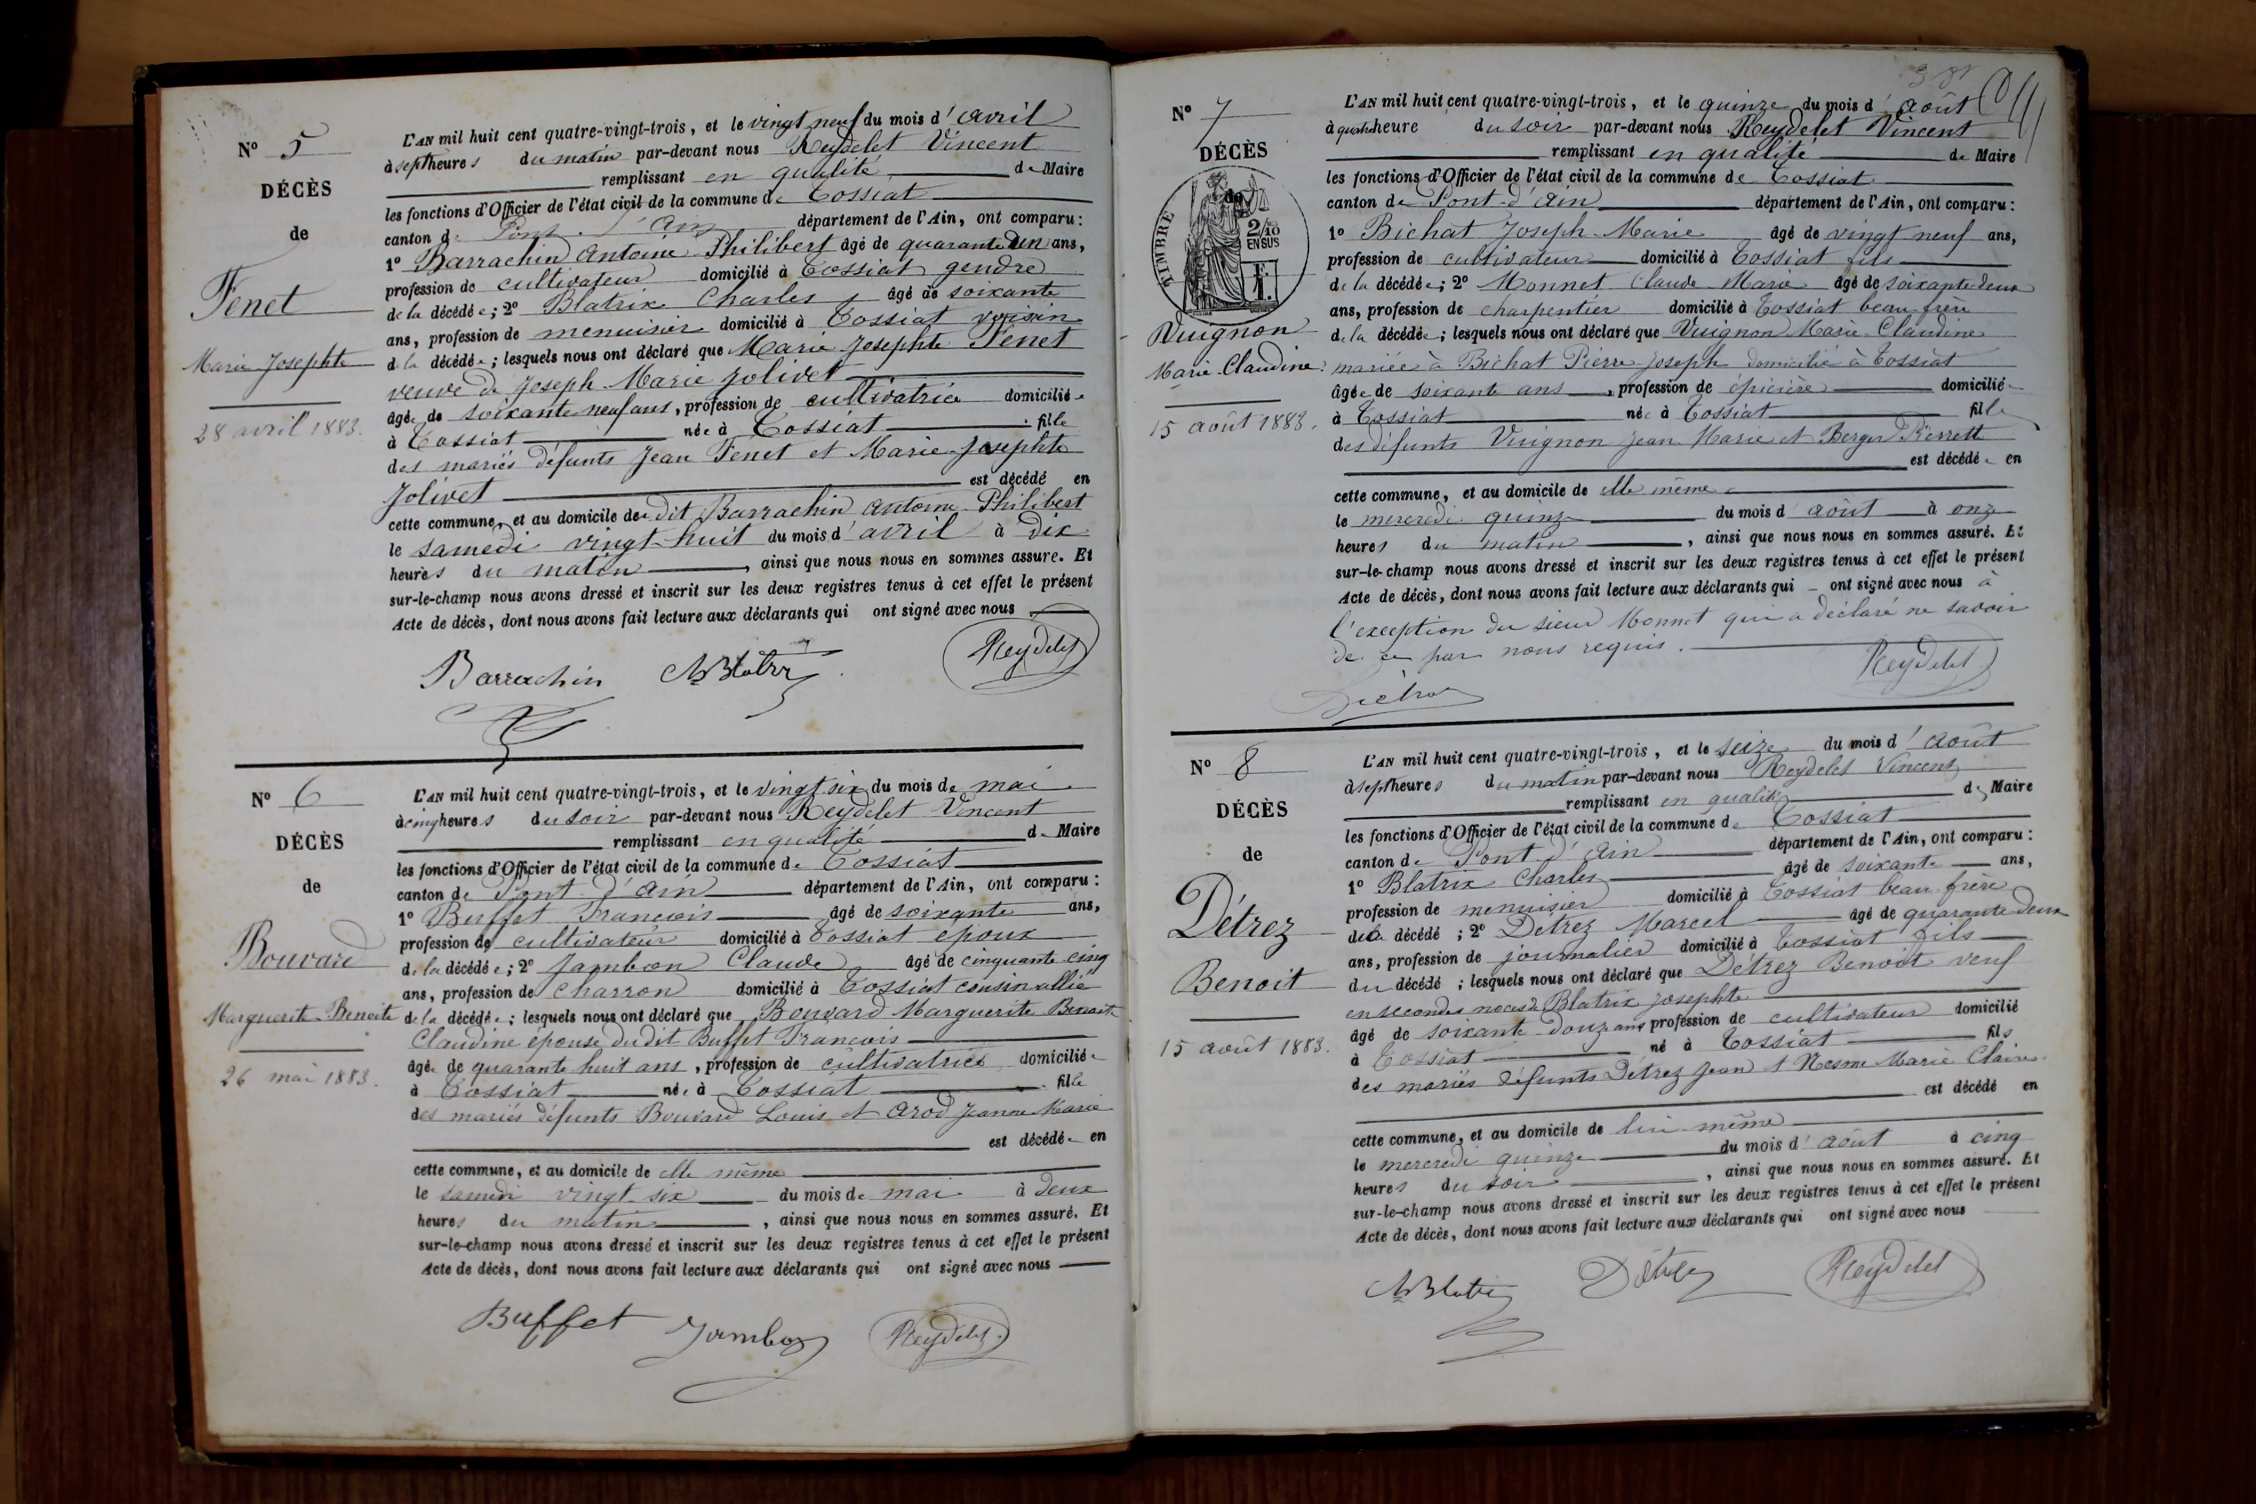 N° 5
DÉCÈS
de
Fenet
Marie Josephte
28 avril 1883.
L'AN mil huit cent quatre-vingt-trois, et le vingt neuf du mois d'avril
à sept heures du matin par-devant nous Reydelet Vincent
remplissant en qualité de Maire
les fonctions d'Officier de l'état civil de la commune de Tossiat
canton de Pont d'Ain département de l'Ain, ont comparu :
1° Barrachin Antoine Philibert âgé de quarante un ans,
profession de cultivateur domicilié à Tossiat gendre
de la décédée ; 2° Blatrix Charles âgé de soixante
ans, profession de menuisier domicilié à Tossiat voisin
de la décédée ; lesquels nous ont déclaré que Marie Josephte Fenet
veuve de Joseph Marie Jolivet
âgée de soixante neuf ans, profession de cultivatrice domiciliée
à Tossiat née à Tossiat fille
des mariés défunts Jean Fenet et Marie Josephte
Jolivet est décédé en
cette commune, et au domicile de dit Barrachin Antoine Philibert
le samedi vingt-huit du mois d'avril à dix
heures du matin, ainsi que nous nous en sommes assuré. Et
sur-le-champ nous avons dressé et inscrit sur les deux registres tenus à cet effet le présent
Acte de décès, dont nous avons fait lecture aux déclarants qui ont signé avec nous
Barrachin Blatrix Reydelet
N° 6
DÉCÈS
de
Bouvard
Marguerite Benoite
26 mai 1883.
L'AN mil huit cent quatre-vingt-trois, et le vingt six du mois de mai
à cinq heures du soir par-devant nous Reydelet Vincent
remplissant en qualité de Maire
les fonctions d'Officier de l'état civil de la commune de Tossiat
canton de Pont d'Ain département de l'Ain, ont comparu :
1° Buffet François âgé de soixante ans,
profession de cultivateur domicilié à Tossiat époux
de la décédée ; 2° Jambon Claude âgé de cinquante cinq
ans, profession de charron domicilié à Tossiat cousin allié
de la décédée ; lesquels nous ont déclaré que Bouvard Marguerite Benoite
Claudine épouse du dit Buffet François
âgée de quarante huit ans, profession de cultivatrice domiciliée
à Tossiat née à Tossiat fille
des mariés défunts Bouvard Louis et Arod Jeanne Marie
est décédée en
cette commune, et au domicile de elle même
le samedi vingt six du mois de mai à deux
heures du matin, ainsi que nous nous en sommes assuré. Et
sur-le-champ nous avons dressé et inscrit sur les deux registres tenus à cet effet le présent
Acte de décès, dont nous avons fait lecture aux déclarants qui ont signé avec nous
Buffet Jambon Reydelet
N° 7
DÉCÈS
de
TIMBRE
2/10
EN SUS
Vuignon
Marie Claudine
15 août 1883.
L'AN mil huit cent quatre-vingt-trois, et le quinze du mois d'août
à quatre heure du soir par-devant nous Reydelet Vincent
remplissant en qualité de Maire
les fonctions d'Officier de l'état civil de la commune de Tossiat
canton de Pont-d'Ain département de l'Ain, ont comparu :
1° Bichat Joseph-Marie âgé de vingt neuf ans,
profession de cultivateur domicilié à Tossiat fils
de la décédée ; 2° Monnet Claude Marie âgé de soixante deux
ans, profession de charpentier domicilié à Tossiat beau frère
de la décédée ; lesquels nous ont déclaré que Vuignon Marie Claudine
mariée à Bichat Pierre Joseph domicilié à Tossiat
âgée de soixante ans, profession de épicière domiciliée
à Tossiat née à Tossiat fille
des défunts Vuignon Jean Marie et Berger Pierrett
est décédée en
cette commune, et au domicile de elle même
le mercredi quinze du mois d'août à onze
heures du matin, ainsi que nous nous en sommes assuré. Et
sur-le-champ nous avons dressé et inscrit sur les deux registres tenus à cet effet le présent
Acte de décès, dont nous avons fait lecture aux déclarants qui ont signé avec nous à
l'exception du sieur Monnet qui a déclaré ne savoir
de ce par nous requis.
Reydelet
N° 8
DÉCÈS
de
Détrez
Benoit
15 août 1883.
L'AN mil huit cent quatre-vingt-trois, et le seize du mois d'août
à sept heures du matin par-devant nous Reydelet Vincent
remplissant en qualité de Maire
les fonctions d'Officier de l'état civil de la commune de Tossiat
canton de Pont d'Ain département de l'Ain, ont comparu :
1° Blatrix Charles âgé de soixante ans,
profession de menuisier domicilié à Tossiat beau frère
de la décédé ; 2° Detrez Marcel âgé de quarante deux
ans, profession de journalier domicilié à Tossiat fils
du décédé ; lesquels nous ont déclaré que Détrez Benoit veuf
en secondes noces de Blatrix Josephte
âgé de soixante douze ans profession de cultivateur domicilié
à Tossiat né à Tossiat fils
des mariés défunts Détrez Jean et Nesme Marie Claire
est décédé en
cette commune, et au domicile de lui même
le mercredi quinze du mois d'août à cinq
heures du soir, ainsi que nous nous en sommes assuré. Et
sur-le-champ nous avons dressé et inscrit sur les deux registres tenus à cet effet le présent
Acte de décès, dont nous avons fait lecture aux déclarants qui ont signé avec nous
Blatrix Détrez Reydelet